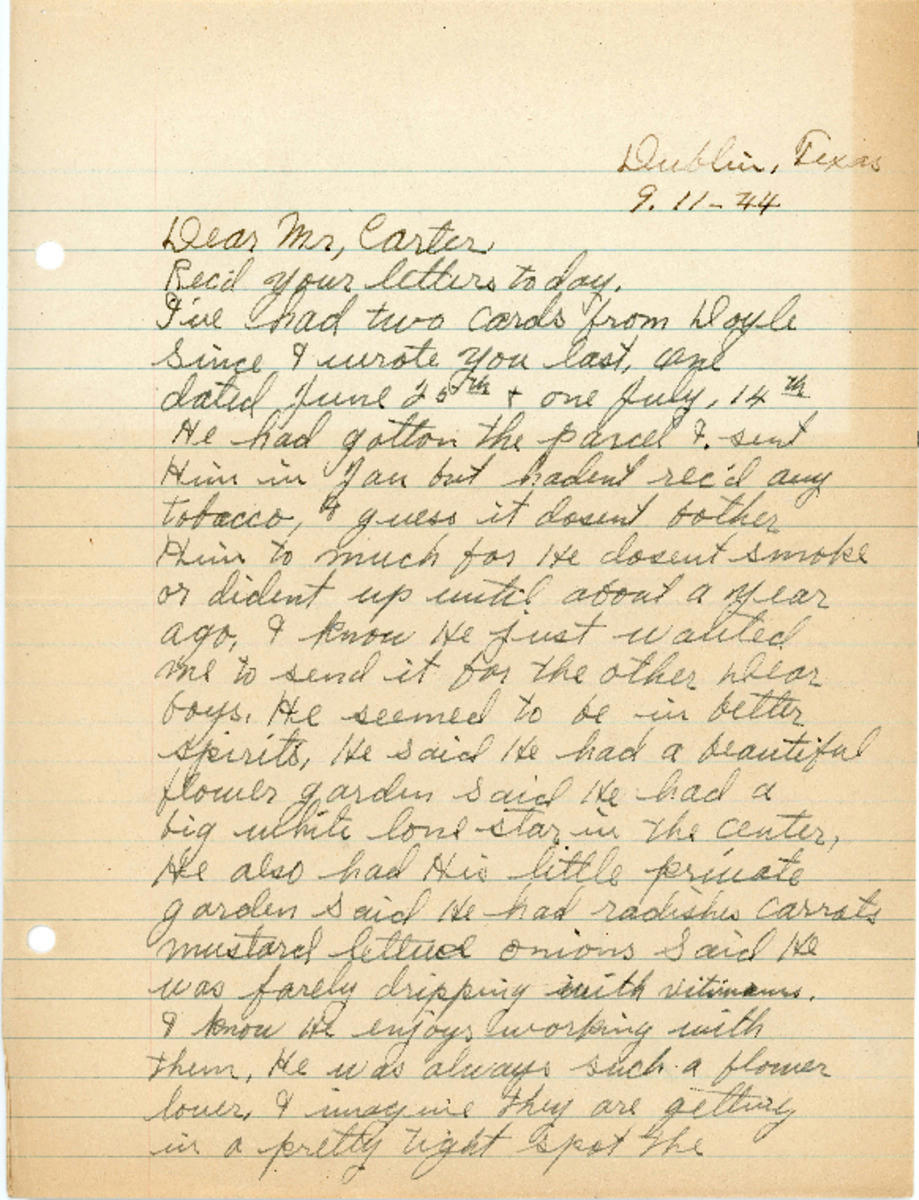 Dublin, Texas
9.11-44
Dear Mr, Carter
Rec'd your letters today.
I've had two cards from Doyle
Since I wrote you last, one
dated June 25th + one July, 14th
He had gotton the parcel I. sent
Him in Jan but hadent rec'd any
tobacco, I guess it dosent bother
Him to much for He dosent smoke
or dident up until about a year
ago, I know He just wanted
me to send it for the other Dear
boys. He seemed to be in better
spirits, He said He had a beautiful
flower garden said He had a
big white lone star in the center,
He also had His little private
garden said He had radishes carrots
mustard lettuce onions said He
was farely dripping with vitimans.
I know He enjoys working with
them, He was always such a flower
lover, I imagine they are getting
in a pretty tight spot the